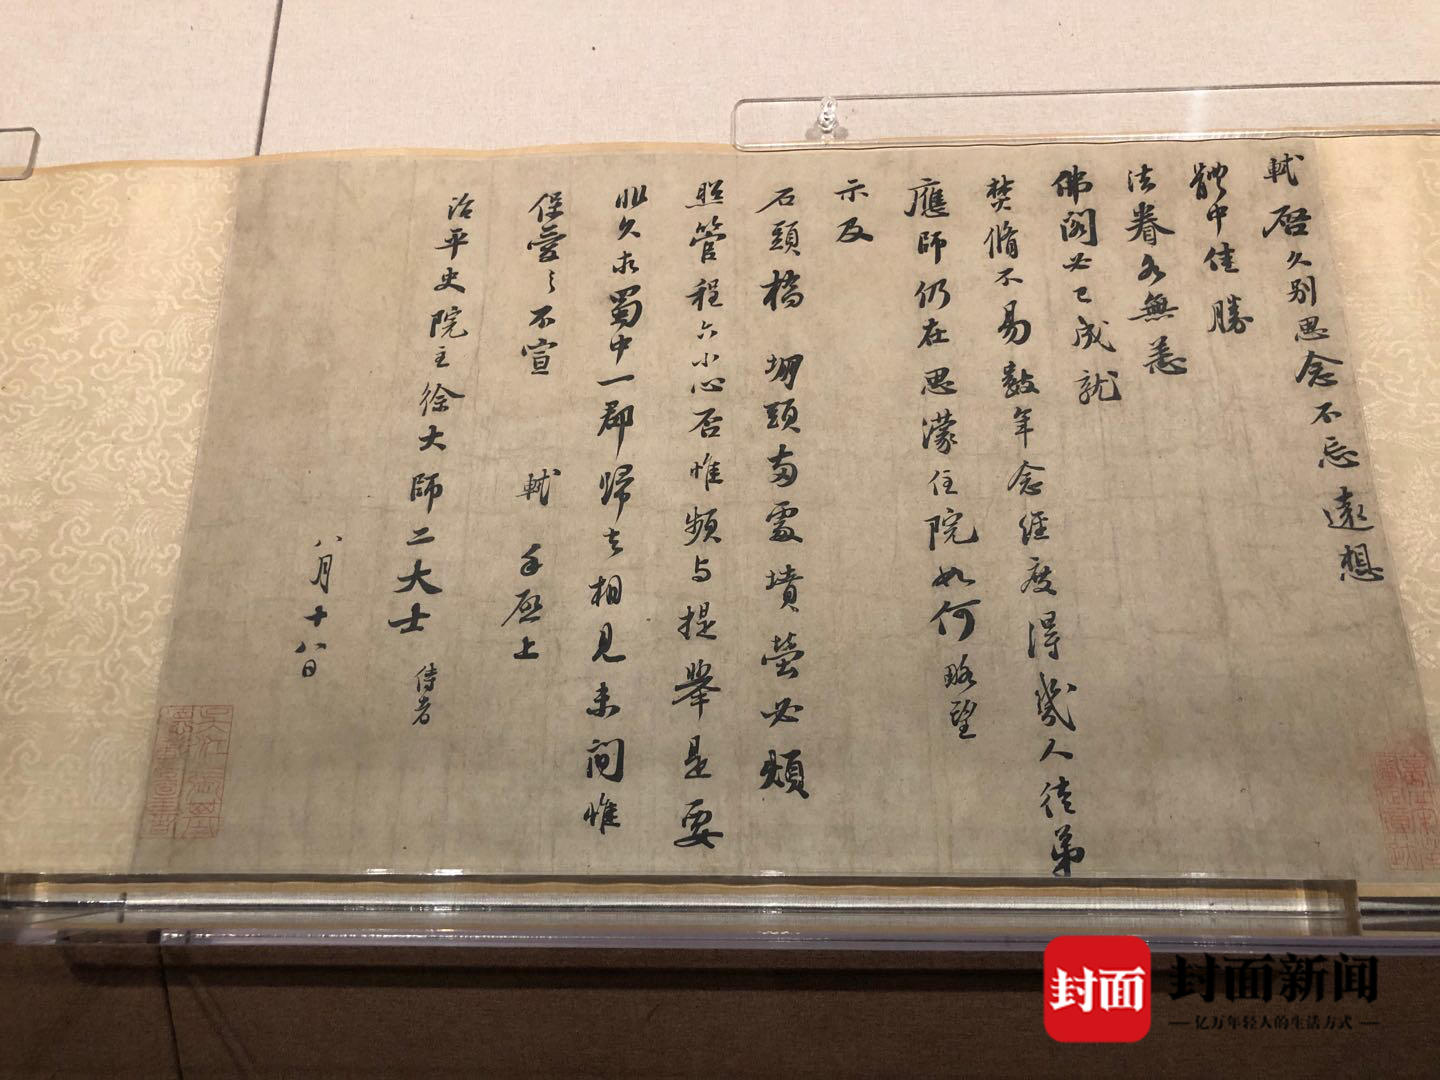 軾啓久別思念不忘遠想
體中佳勝
法眷各無恙
佛閣必已成就
焚脩不易數年念經度得幾人徒弟
應師仍在思濛住院如何略望
示及
石頭橋堋頭兩處墳塋必煩
照管程六小心否惟頻與提舉是要
非久求蜀中一郡歸去相見未間惟
保愛之不宣 軾手啓上
治平史院主徐大師二大士侍者
八月十八日
封面
封面新闻
亿万年轻人的生活方式